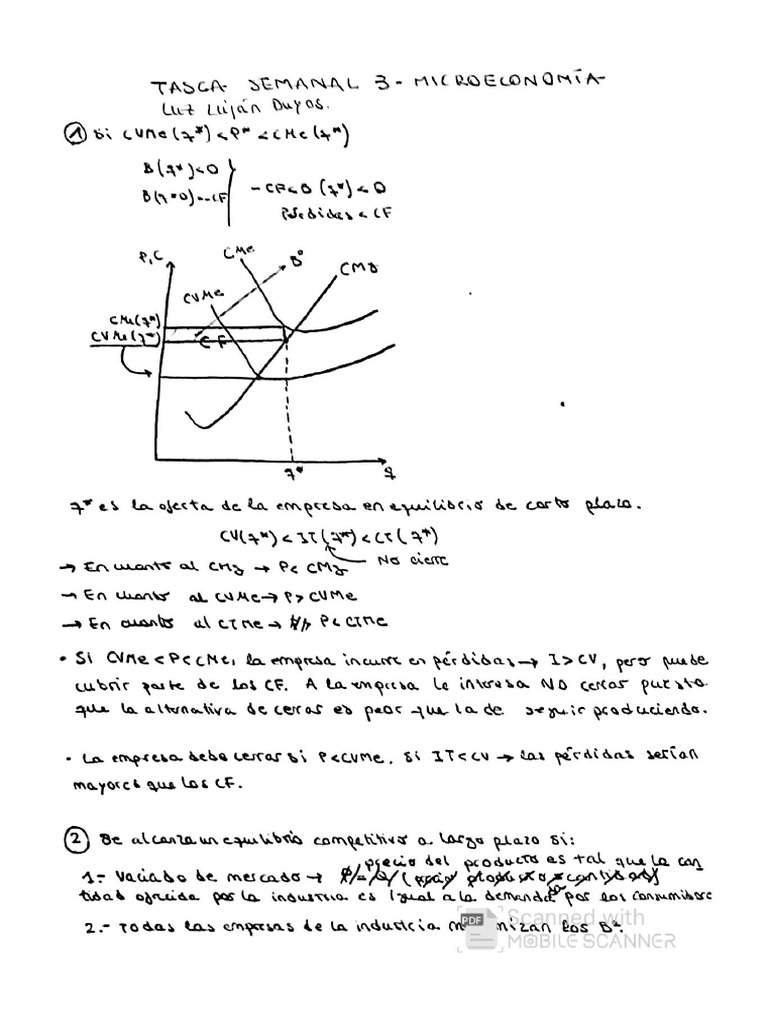 TASCA SEMANAL 3 - MICROECONOMÍA
Luz Luján Duyos.
① Si CVMe(q*) < P* < CMe(q*)
B(q*)<0
B(q=0)=-CF
-CF<B(q*)<0
Pérdidas < CF
P,C
CMe
Bº
CMg
CVMe
CMe(q*)
CVMe(q*)
CF
q*
q
q* es la oferta de la empresa en equilibrio de corto plazo.
CV(q*) < IT(q*) < CT(q*)
→ En cuanto al CMg → P< CMg
No cierre
→ En cuanto al CVMe → P> CVMe
→ En cuanto al CTMe → P< CTMe
• Si CVMe < P< CMe, la empresa incurre en pérdidas → I > CV, pero puede
cubrir parte de los CF. A la empresa le interesa NO cerrar puesto
que la alternativa de cerrar es peor que la de seguir produciendo.
• La empresa debe cerrar si P< CVMe. Si IT<CV → las pérdidas serían
mayores que los CF.
② Se alcanza un equilibrio competitivo a largo plazo si:
precio del producto es tal que la can
1.- Vaciado de mercado →
tidad ofrecida por la industria es igual a la demandada por los consumidore
2.- Todas las empresas de la industria maximizan los Bº.
PDF
Scanned with
MOBILE SCANNER